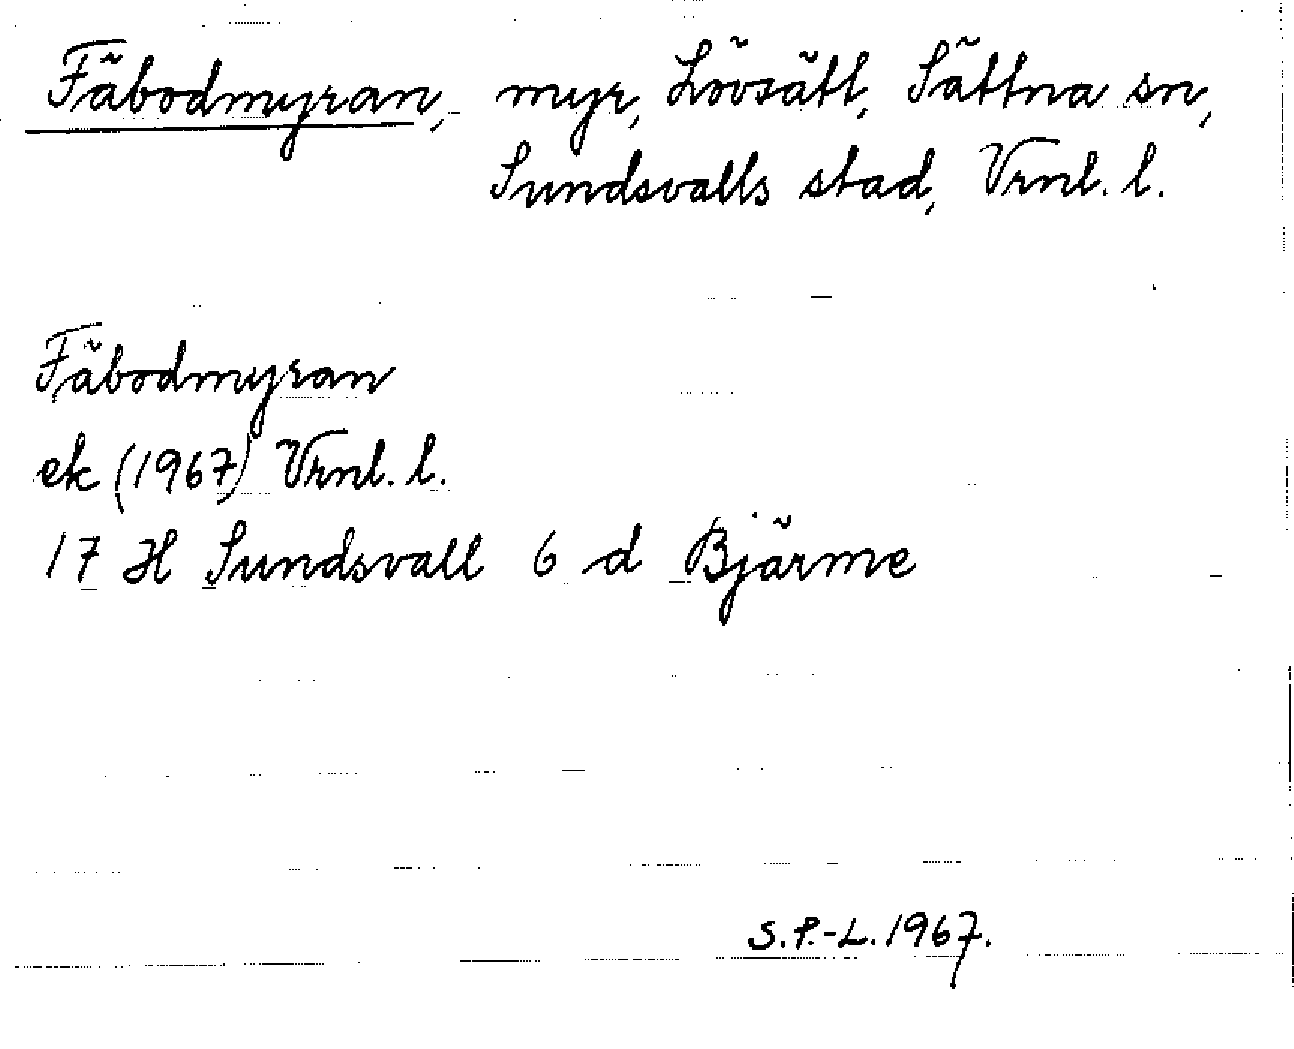 Fäbodmyran, myr, Lövsätt, Sättna sn,
Sundsvalls stad, Vrnl. l.
Fäbodmyran
ek (1967) Vrnl. l.
17 H Sundsvall 6 d Bjärme
S.P.-L. 1967.